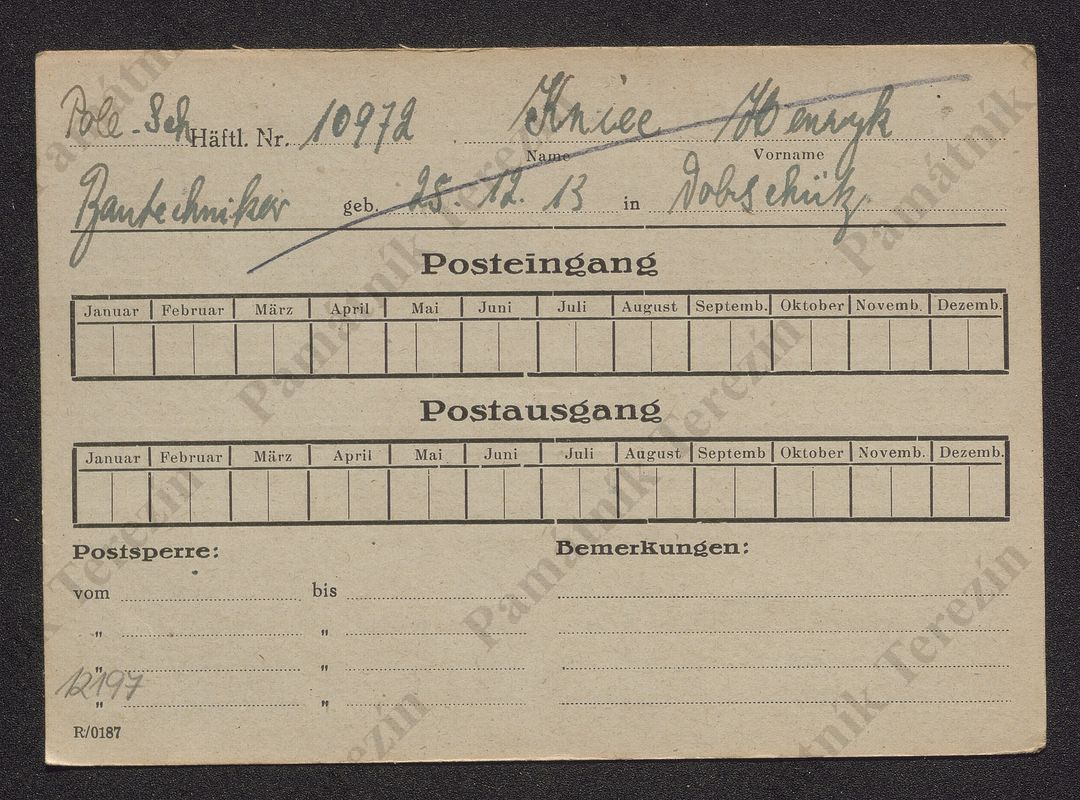 Pole - Sch Häftl. Nr. 10972 Kniec Henryk
Name Vorname
Bautechniker geb. 25. 12. 13 in Dobschütz
Posteingang
Januar Februar März April Mai Juni Juli August Septemb. Oktober Novemb. Dezemb.
Postausgang
Januar Februar März April Mai Juni Juli August Septemb Oktober Novemb. Dezemb.
Postsperre: Bemerkungen:
vom bis
" "
" "
" "
12197
R/0187
Památník Terezín